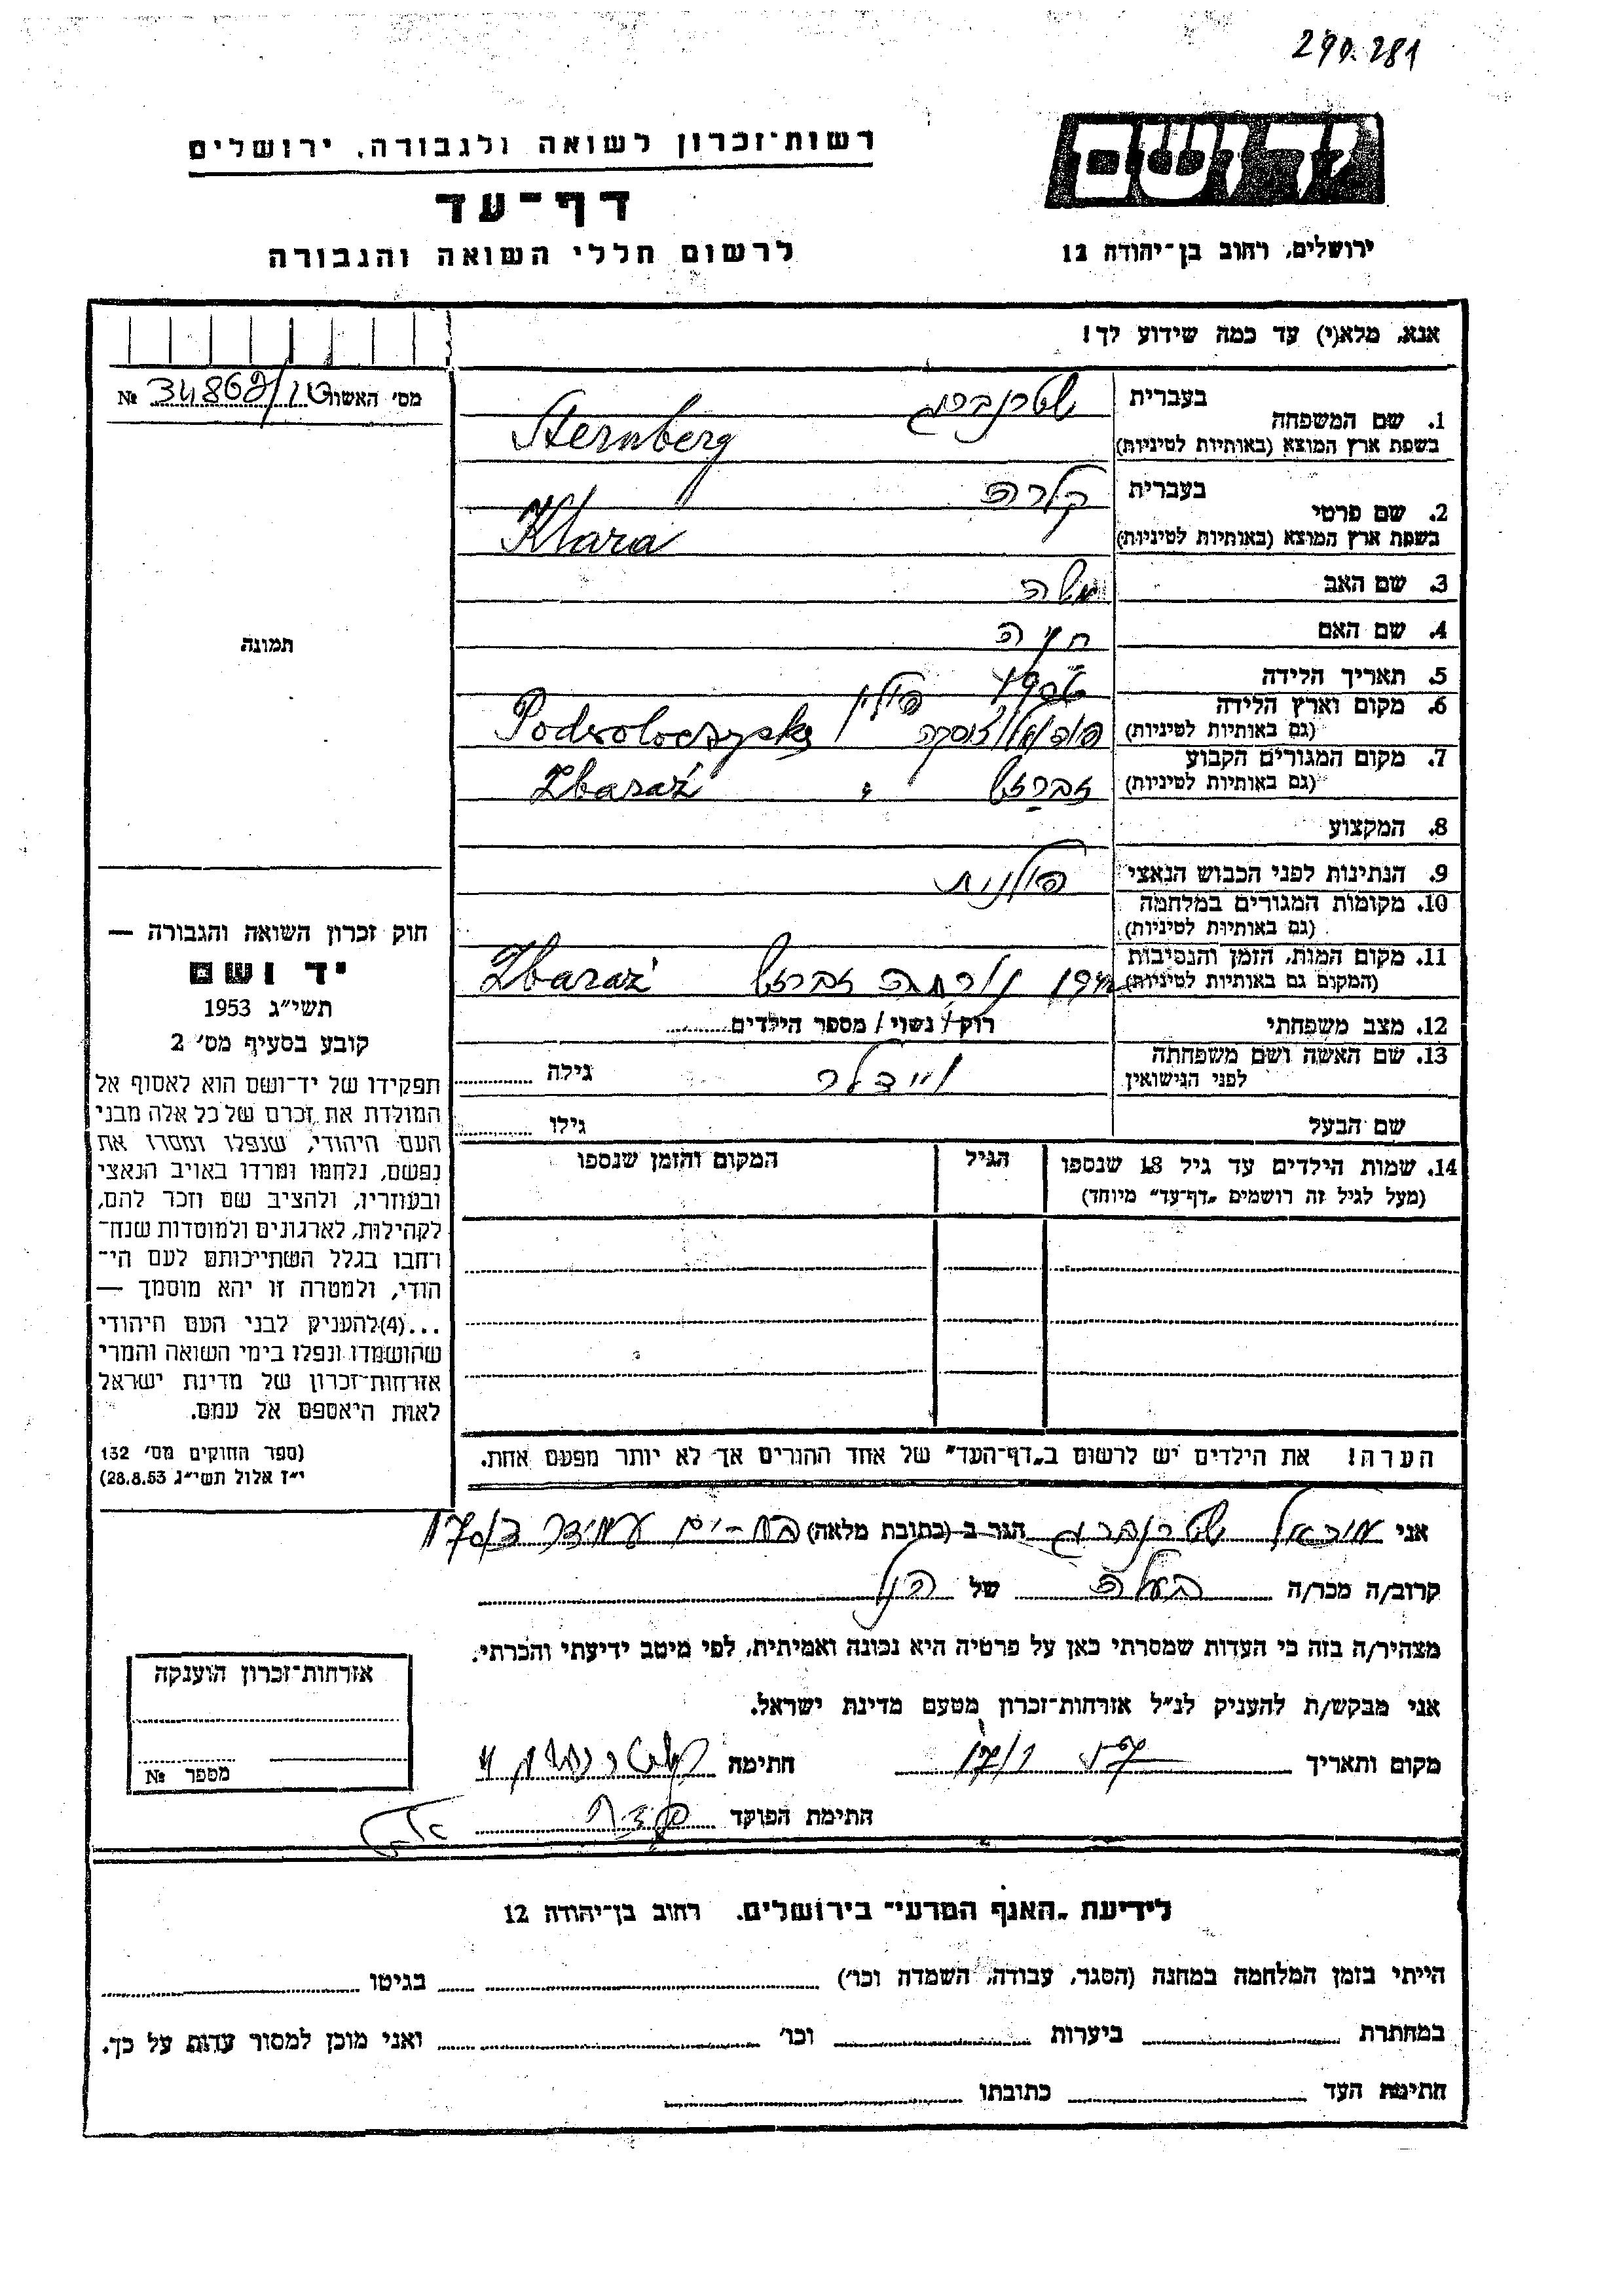 290.281
רשות־זכרון לשואה ולגבורה, ירושלים
דף־עד
לרשום חללי השואה והגבורה
יד ושם
ירושלים, רחוב בן־יהודה 12
אנא, מלא(י) עד כמה שידוע לך!
מס׳ האשור № 34862/
תמונה
1. שם המשפחה בעברית שטרנברג
בשפת ארץ המוצא (באותיות לטיניות) Sternberg
2. שם פרטי בעברית קלרה
בשפת ארץ המוצא (באותיות לטיניות) Klara
3. שם האב משה
4. שם האם חיה
5. תאריך הלידה
6. מקום וארץ הלידה פולין
(גם באותיות לטיניות) Podwoloczyska
7. מקום המגורים הקבוע
(גם באותיות לטיניות) זברז׳ Zbaraż
8. המקצוע
9. הנתינות לפני הכבוש הנאצי פולנית
10. מקומות המגורים במלחמה
(גם באותיות לטיניות)
11. מקום המות, הזמן והנסיבות
(המקום גם באותיות לטיניות) נורתה זברז׳ Zbaraż
12. מצב משפחתי רוק / נשוי / מספר הילדים
13. שם האשה ושם משפחתה
לפני הנישואין ויידלר גילה
שם הבעל גילו
14. שמות הילדים עד גיל 18 שנספו הגיל המקום והזמן שנספו
(מעל לגיל זה רושמים „דף־עד״ מיוחד)
הערה! את הילדים יש לרשום ב„דף־העד״ של אחד ההורים אך לא יותר מפעם אחת.
חוק זכרון השואה והגבורה —
יד ושם
תשי״ג 1953
קובע בסעיף מס׳ 2
תפקידו של יד־ושם הוא לאסוף אל
המולדת את זכרם של כל אלה מבני
העם היהודי, שנפלו ומסרו את
נפשם, נלחמו ומרדו באויב הנאצי
ובעוזריו, ולהציב שם וזכר להם,
לקהילות, לארגונים ולמוסדות שנח־
רחבו בגלל השתייכותם לעם הי־
הודי, ולמטרה זו יהא מוסמך —
...(4)להעניק לבני העם היהודי
שהושמדו ונפלו בימי השואה והמרי
אזרחות־זכרון של מדינת ישראל
לאות היאספם אל עמם.
(ספר החוקים מס׳ 132
י״ז אלול תשי״ג 28.8.53)
אני מיכאל שטרנברג הגר ב (כתובת מלאה) בת-ים עמידר
קרוב/ה מכר/ה בעלה של הנ״ל
מצהיר/ה בזה כי העדות שמסרתי כאן על פרטיה היא נכונה ואמיתית, לפי מיטב ידיעתי והכרתי.
אני מבקש/ת להעניק לנ״ל אזרחות־זכרון מטעם מדינת ישראל.
מקום ותאריך חתימה
חתימת הפוקד
אזרחות־זכרון הוענקה
מספר №
לידיעת „האגף המדעי״ בירושלים. רחוב בן־יהודה 12
הייתי בזמן המלחמה במחנה (הסגר, עבודה, השמדה וכו׳) בגיטו
במחתרת ביערות וכו׳ ואני מוכן למסור עדות על כך.
חתימת העד כתובתו